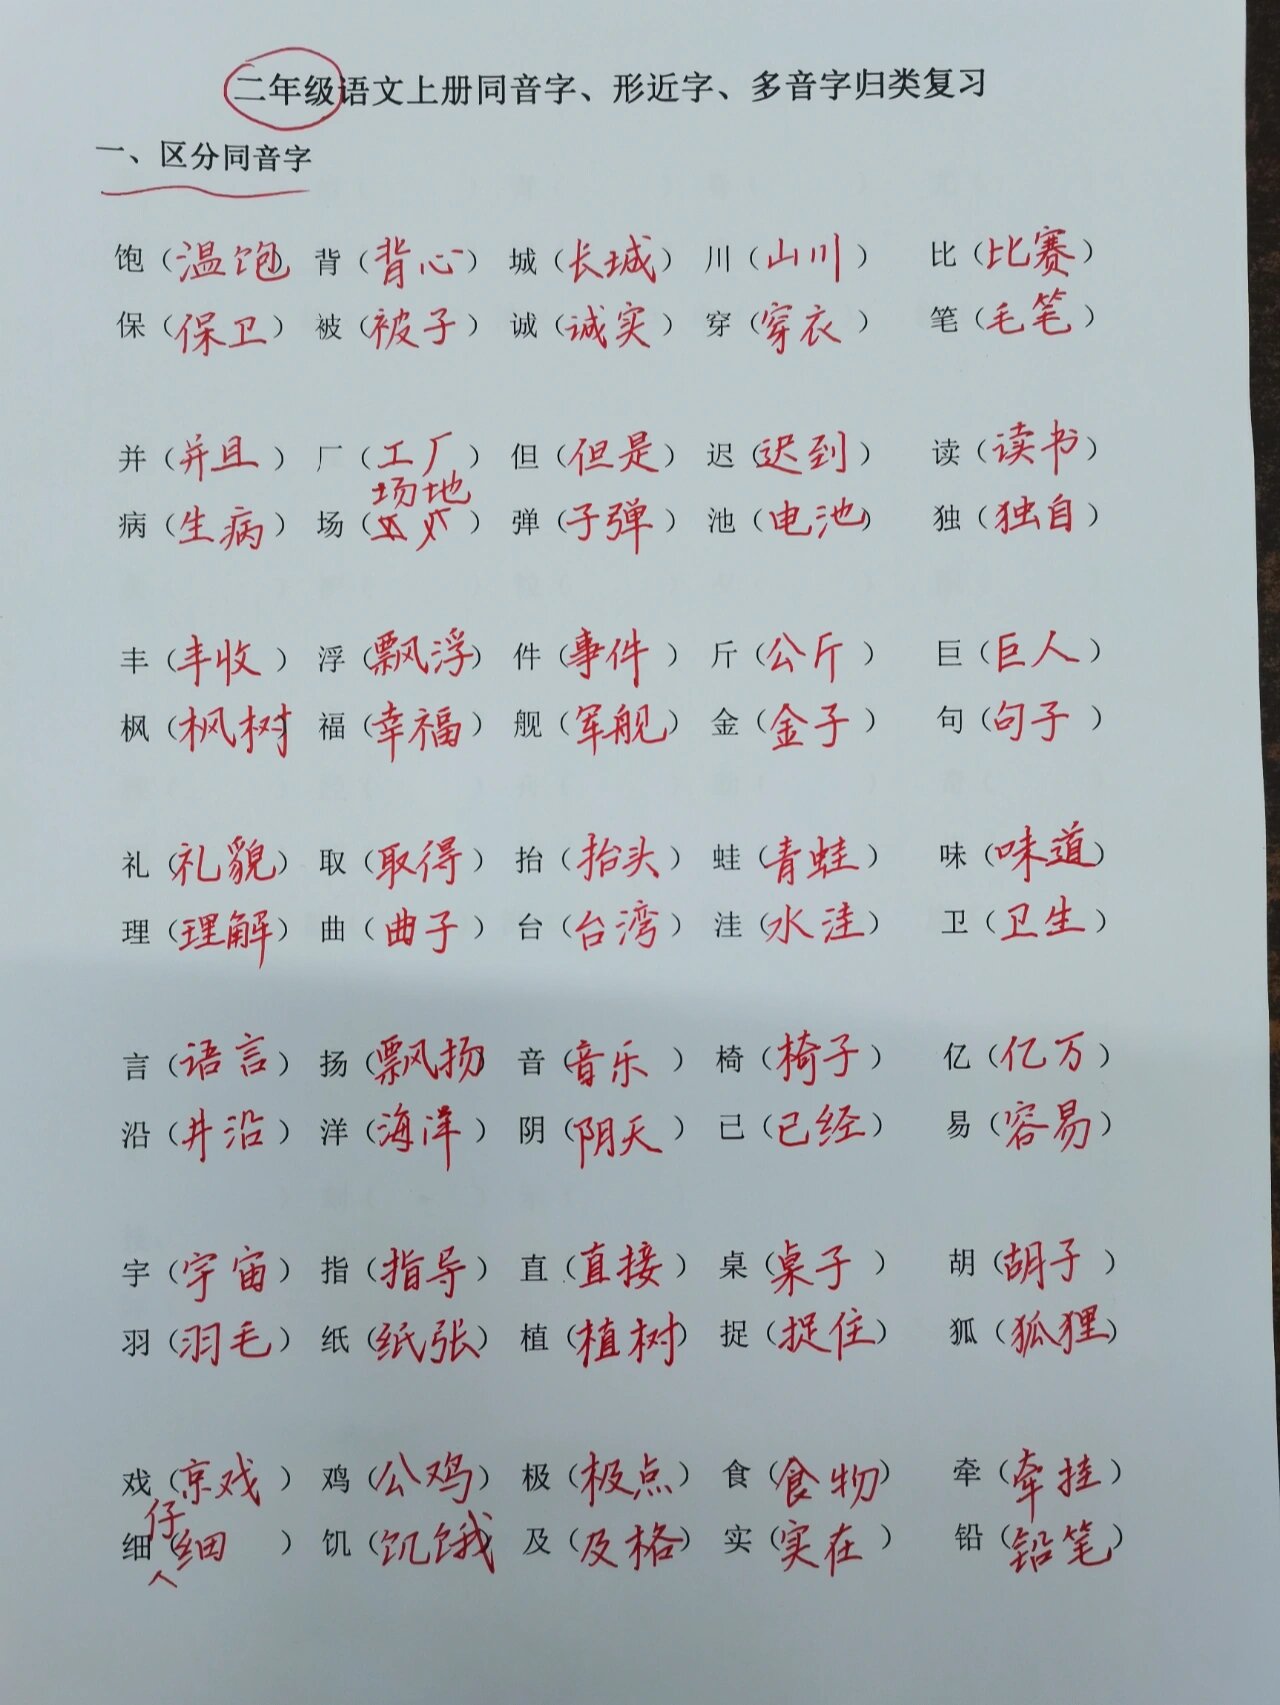 二年级语文上册同音字、形近字、多音字归类复习
一、区分同音字
饱（温饱） 背（背心） 城（长城） 川（山川） 比（比赛）
保（保卫） 被（被子） 诚（诚实） 穿（穿衣） 笔（毛笔）
并（并且） 厂（工厂） 但（但是） 迟（迟到） 读（读书）
病（生病） 场（场地） 弹（子弹） 池（电池） 独（独自）
丰（丰收） 浮（飘浮） 件（事件） 斤（公斤） 巨（巨人）
枫（枫树） 福（幸福） 舰（军舰） 金（金子） 句（句子）
礼（礼貌） 取（取得） 抬（抬头） 蛙（青蛙） 味（味道）
理（理解） 曲（曲子） 台（台湾） 洼（水洼） 卫（卫生）
言（语言） 扬（飘扬） 音（音乐） 椅（椅子） 亿（亿万）
沿（井沿） 洋（海洋） 阴（阴天） 已（已经） 易（容易）
宇（宇宙） 指（指导） 直（直接） 桌（桌子） 胡（胡子）
羽（羽毛） 纸（纸张） 植（植树） 捉（捉住） 狐（狐狸）
戏（京戏） 鸡（公鸡） 极（极点） 食（食物） 牵（牵挂）
细（仔细） 饥（饥饿） 及（及格） 实（实在） 铅（铅笔）